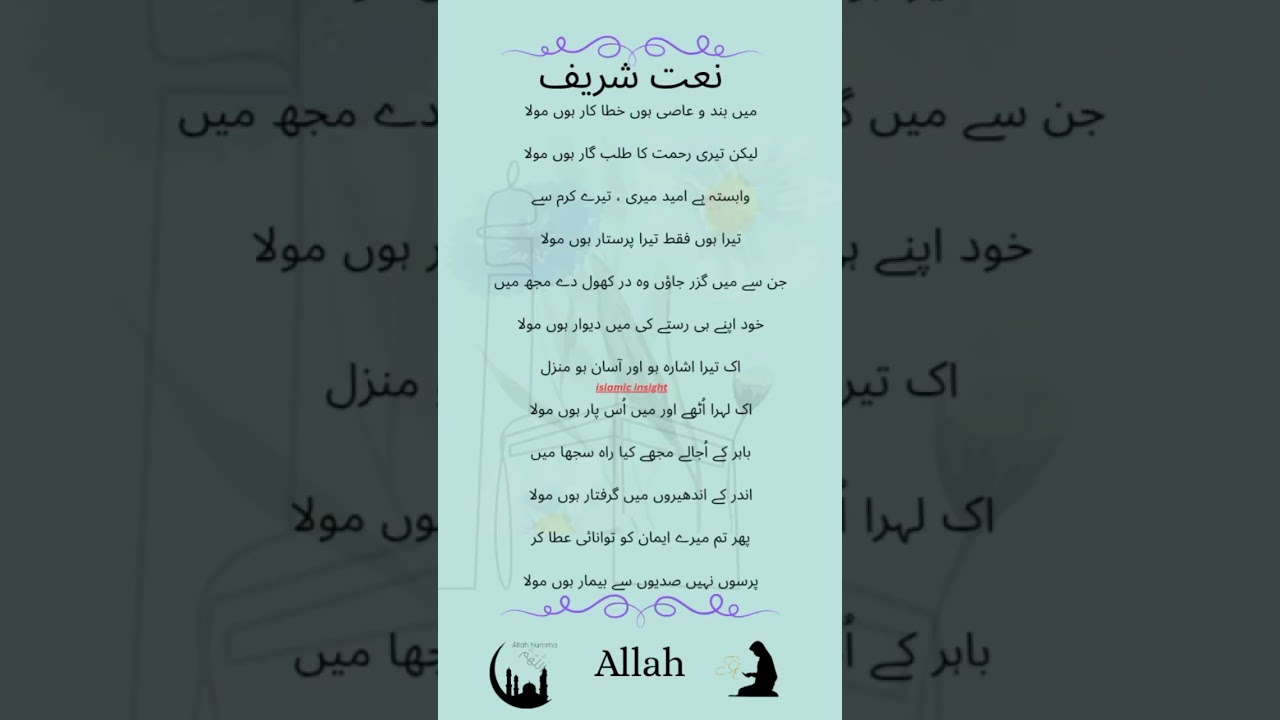 نعت شریف
میں بند و عاصی ہوں خطا کار ہوں مولا
لیکن تیری رحمت کا طلب گار ہوں مولا
وابستہ ہے امید میری ، تیرے کرم سے
تیرا ہوں فقط تیرا پرستار ہوں مولا
جن سے میں گزر جاؤں وہ در کھول دے مجھ میں
خود اپنے ہی رستے کی میں دیوار ہوں مولا
اک تیرا اشارہ ہو اور آسان ہو منزل
islamic insight
اک لہرا اُٹھے اور میں اُس پار ہوں مولا
باہر کے اُجالے مجھے کیا راہ سجھا میں
اندر کے اندھیروں میں گرفتار ہوں مولا
پھر تم میرے ایمان کو توانائی عطا کر
پرسوں نہیں صدیوں سے بیمار ہوں مولا
Allah humma
اللهم
Allah